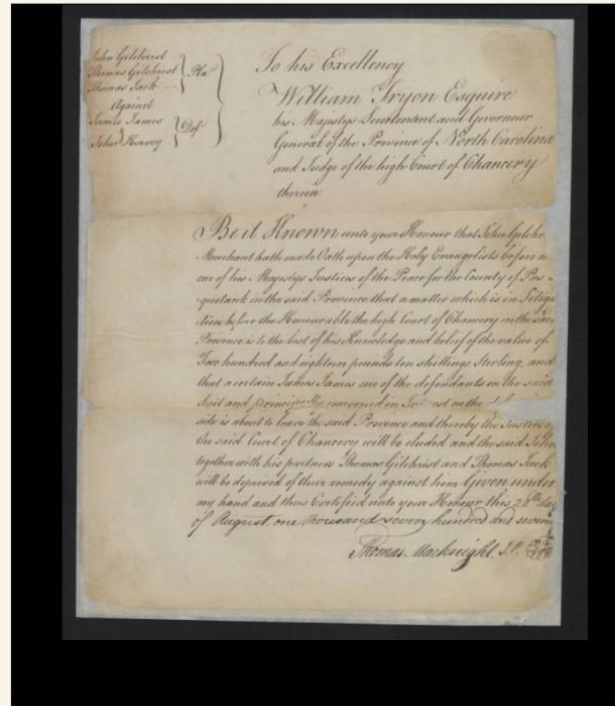 John Gilchrist
Thomas Gilchrist
Thomas Jack
Pls
Against
James James
&
John Hervey
Defs
To his Excellency
William Tryon Esquire
his Majestys Lieutenant and Governour
General of the Province of North Carolina
and Judge of the high Court of Chancery
therein
Be it Known unto your Honour that John Gilchr
Merchant hath made Oath upon the Holy Evangelists before
one of his Majestys Justices of the Peace for the County of Pas=
quetank in the said Province that a matter which is in Litiga
tion before the Honourable the high Court of Chancery in the said
Province is to the best of his Knowledge and belief of the value of
Two hundred and eighteen pounds ten shillings Sterling, and
that a certain James James one of the defendants in the said
Suit and principally concerned in on the
side is about to leave the said Province and thereby the Justice of
the said Court of Chancery will be eluded and the said John
together with his partners Thomas Gilchrist and Thomas Jack
will be deprived of their remedy against him Given under
my hand and thus Certified unto your Honour this 28th day
of August, one thousand seven hundred and seven
Thomas Macknight. J.P.